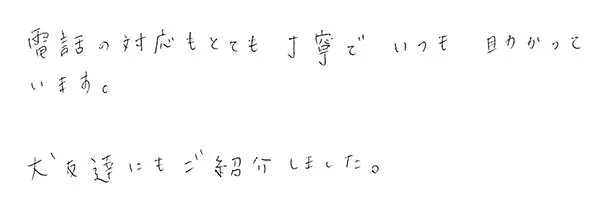 電話の対応もとても丁寧で いつも 助かって
います。
犬友達にもご紹介しました。